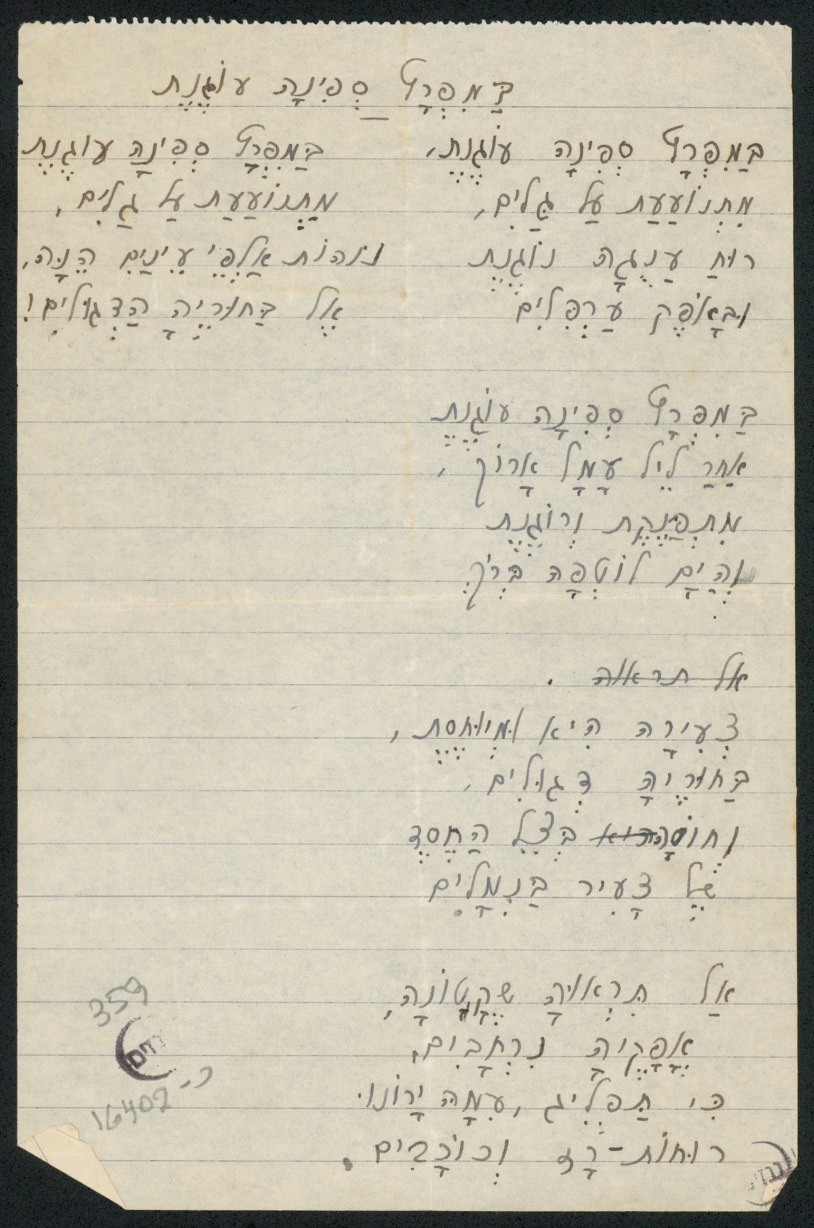 בַּמִּפְרָץ סְפִינָה עוֹגֶנֶת
בַּמִּפְרָץ סְפִינָה עוֹגֶנֶת,
מִתְנוֹעַעַת עַל גַּלִּים,
רוּחַ עֲנֻגָּה נוֹגֶנֶת
וּבָאֹפֶק עַרְפִלִּים
בַּמִּפְרָץ סְפִינָה עוֹגֶנֶת
מִתְנוֹעַעַת עַל גַּלִּים,
נוֹהוֹת אַלְפֵי עֵינַיִם הֵנָּה,
אֶל בַּחוּרֶיהָ הַדְּגוּלִים!
בַּמִּפְרָץ סְפִינָה עוֹגֶנֶת
אַחַר לֵיל עָמָל אָרוֹךְ,
מִתְפַּנֶּקֶת וְרוֹגֶנֶת
וְהַיָּם לוֹטְפָהּ בְּרֹךְ.
אל תראוה .
צְעִירָה הִיא וּמְיוּחֶסֶת,
בַּחוּרֶיהָ דְּגוּלִים,
וְחוֹסָה בְּצֵל הַחֶסֶד
שֶׁל צָעִיר בַּנְּמָלִים
אַל תִּרְאוּהָ שֶׁקָּטֹנָה,
אֳפָקֶיהָ נִרְחָבִים,
כִּי תַפְלִיג, עִמָּהּ יָרוֹנוּ
רוּחוֹת-רָז וְכוֹכָבִים.
359
16402-כ